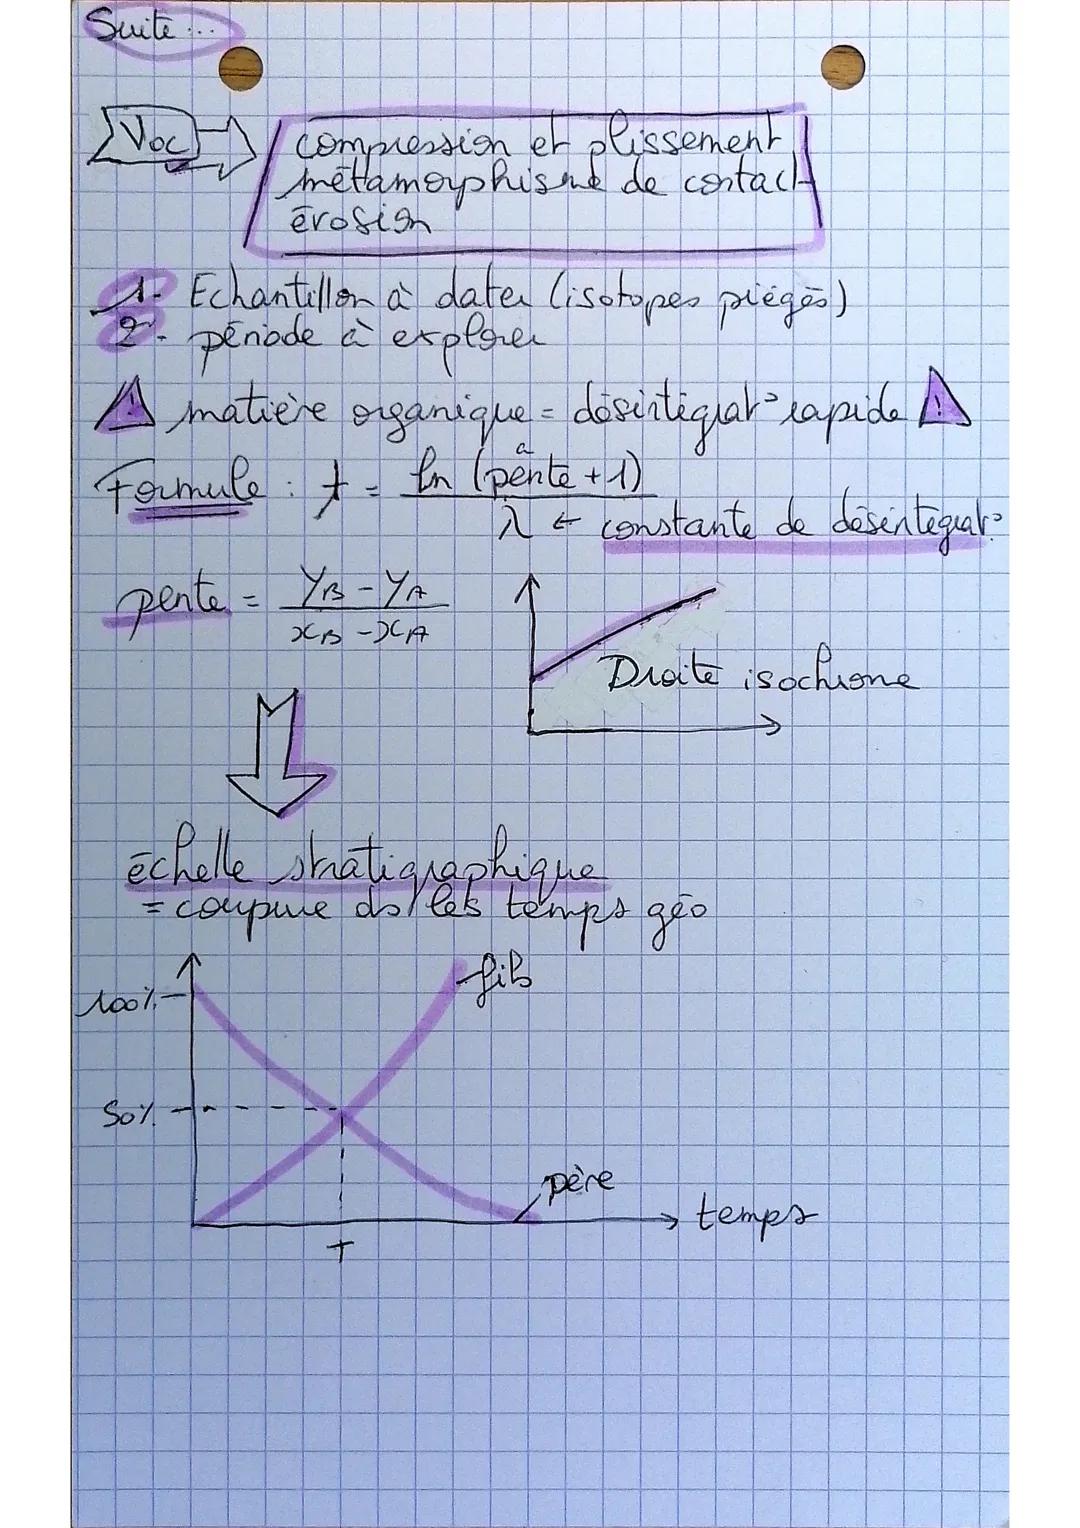 Suite ...
Voc
compression et plissement
métamorphisme de contact
érosion
1- Echantillon à dater (isotopes piégés)
2- période à explorer
! matière organique = désintégrat° rapide !
a
Formule : t = ln (pente + 1)
λ ← constante de désintégrat°
pente = yB - yA
xB - xA
Droite isochrone
échelle stratigraphique
= coupure ds les temps géo
fils
100%
50%
père
temps
T